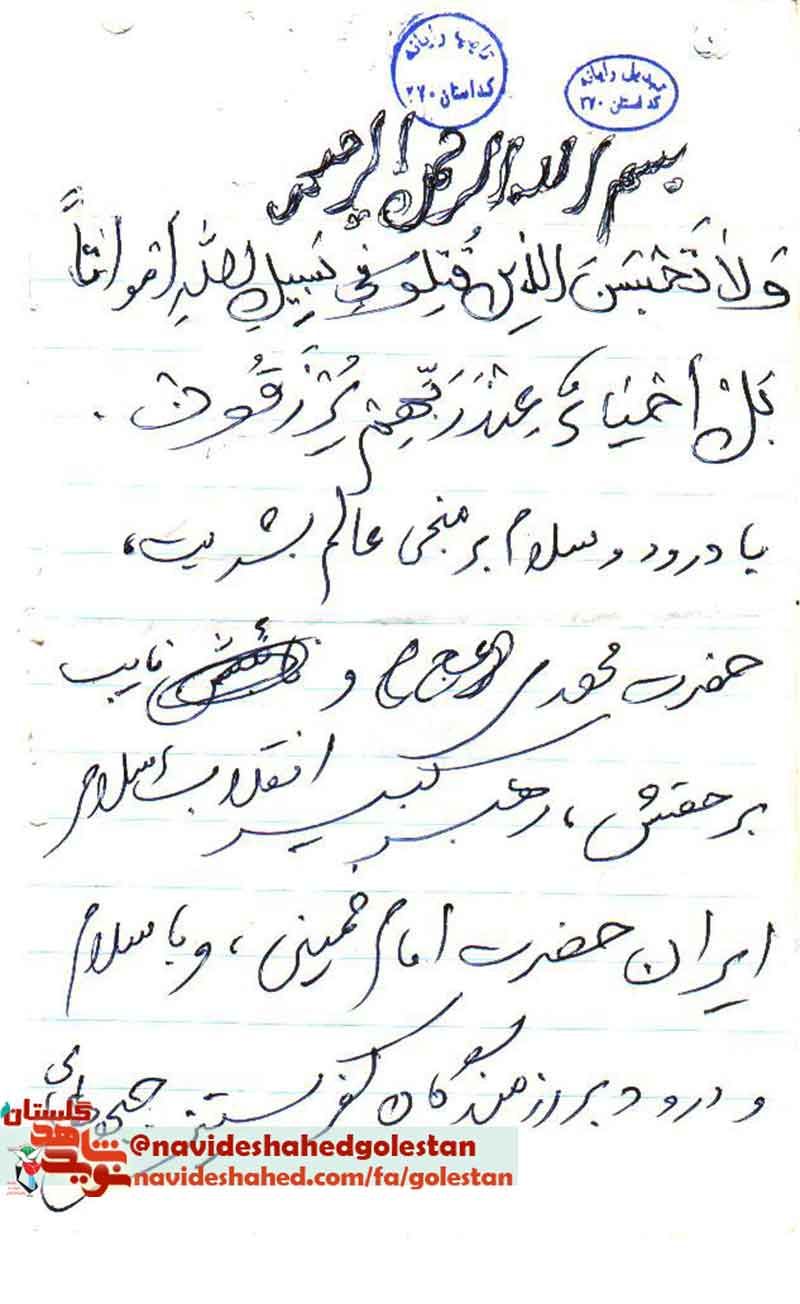 تاریها رایانه
کد استان ۲۷۰
تبدیل رایانه
کد استان ۲۷۰
بسم الله الرحمن الرحیم
وَلاٰ تَحْسَبَنَ الذین قُتِلو فی سَبیلِ اللهِ اَمْواتاً
بَلْ اَحْیٰاءٌ عِنْدَ رَبِّهِمْ یُرْزَقُون .
با درود و سلام بر منجی عالم بشریت،
حضرت مهدی (عج) و نایب
بر حقش، رهبر کبیر انقلاب اسلامی
ایران حضرت امام خمینی، و با سلام
و درود بر رزمندگان کفرستیز جبهه‌های
گلستان
نوید شاهد
@navideshahedgolestan
navideshahed.com/fa/golestan